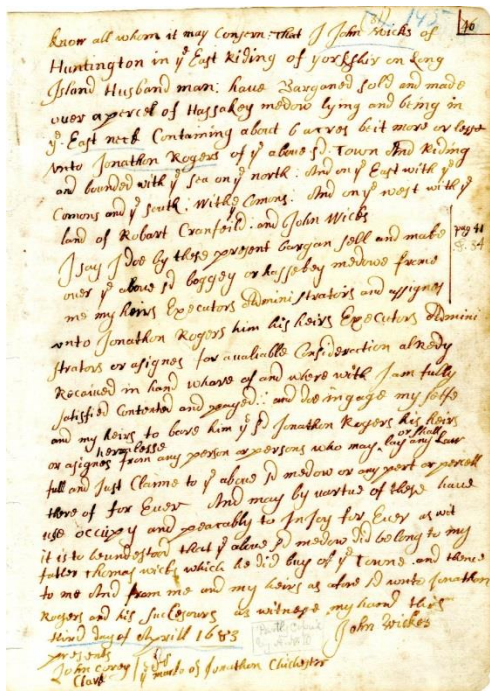 195
40
know all whom it may Concern: that I John Wicks of
Huntington in yᵉ East Riding of yorkshir on Long
Island Husband man: have Barganed sold and made
over a percel of Hassakey medow lying and being in
yᵉ East neck Containing about 6 acres be it more or lesse
unto Jonathon Rogers of yᵉ above sd Town And Riding
and bounded with yᵉ sea on yᵉ north: And on yᵉ East with yᵉ
Comons and yᵉ south: With yᵉ Comons: And on yᵉ west with yᵉ
land of Robart Cranfeild: and John Wicks
I say I doe by these present bargan sell and make
over yᵉ above sd boggey or hassekey medowe from
me my heirs Executors Adminis strators and assignes
unto Jonathon Rogers him his heirs Executors Admini
strators or asignes for avaliable Consideraction alredy
Received in hand whare of and where with I am fully
satisfied Contented and payed: and doe ingage my selfe
and my heirs to bare him yᵉ sd Jonathon Rogers his heirs
hermelesse or shall
or asignes from any person or persons who may lay any Law
full and Just Clame to yᵉ above sd medow or any pert or percell
there of for Ever And may by vartue of these have
use occupy and peacably to Injoy for Ever as wit
it is to be understood that yᵉ above sd medow did belong to my
father Thomas wicks which he did buy of yᵉ Towne and thence
to me And from me and my heirs as afore sd unto Jonathon
Rogers and his suckesours as witnese my hand this
day of Aprill 1683
John Wickes
presents
John Corey
Clark
yᵉ marke of Jonathon Chichester
pag 41